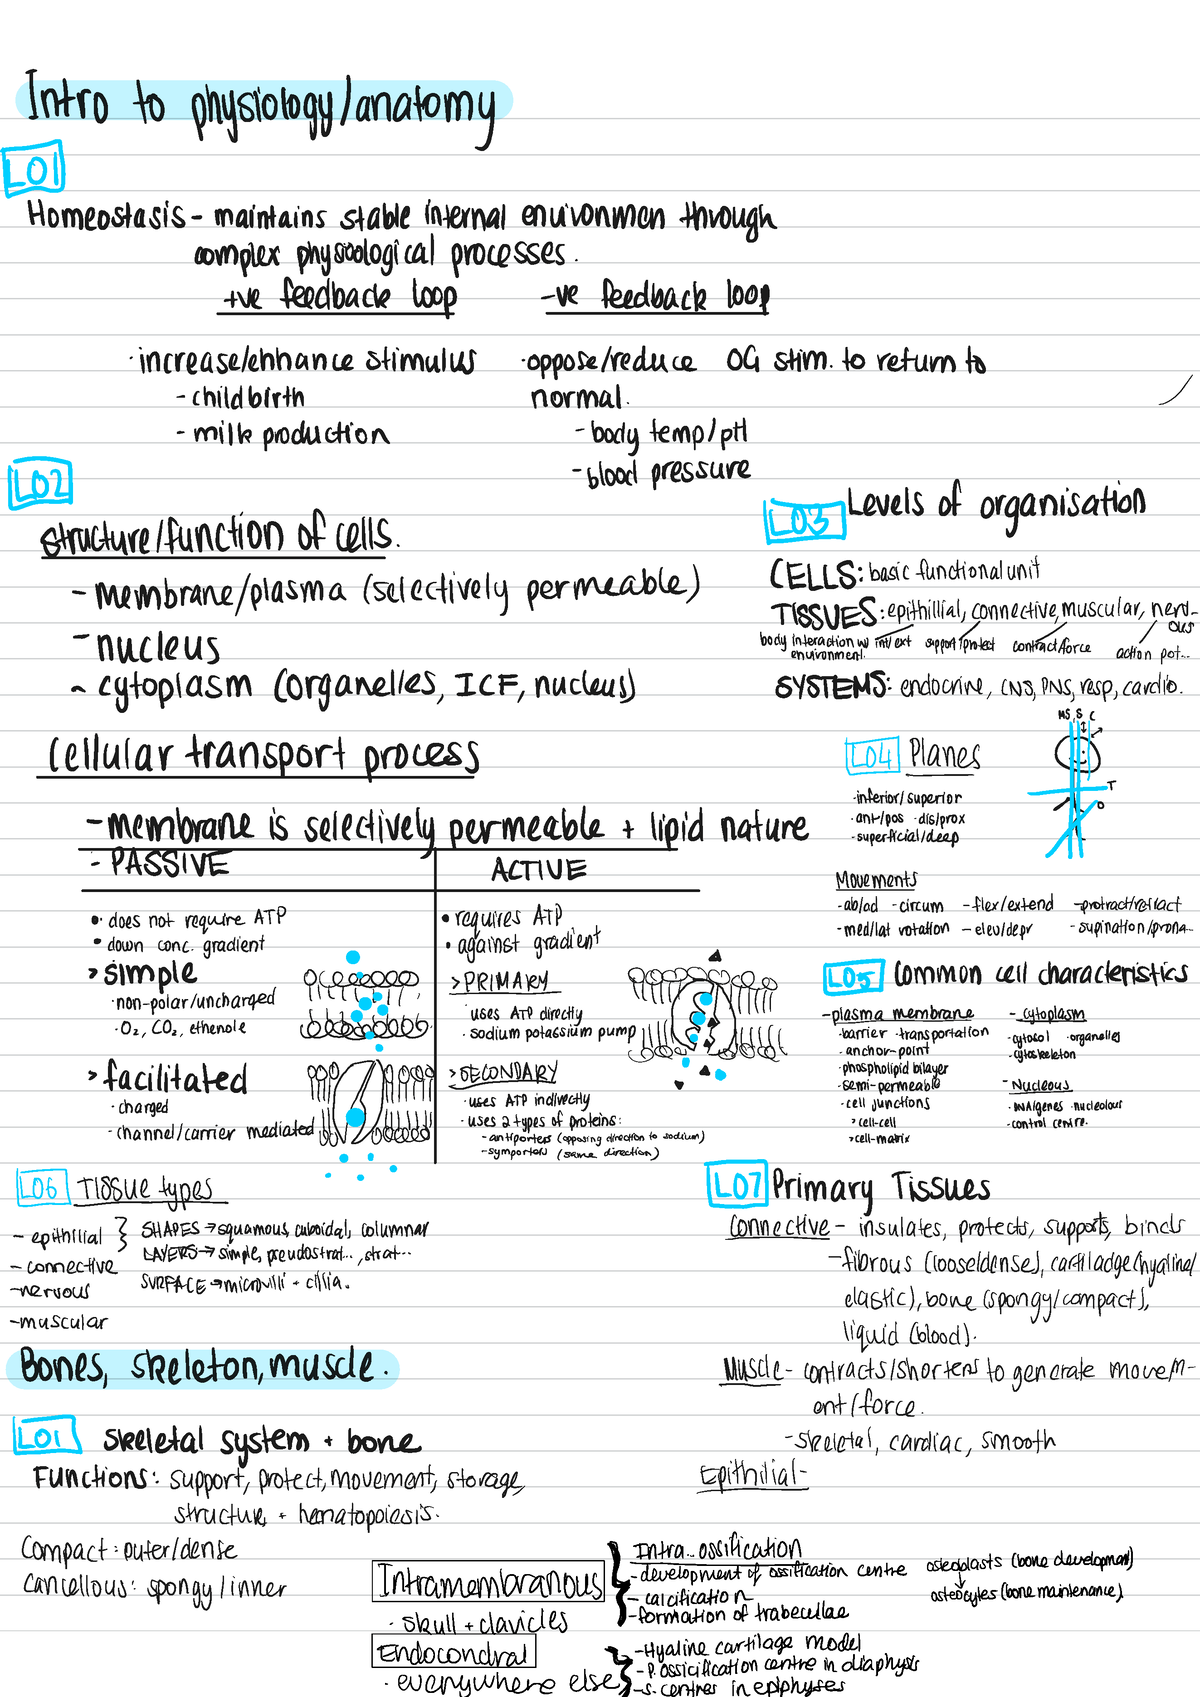 Intro to physiology/anatomy
LO1
Homeostasis - maintains stable internal environmen through
complex physioological processes.
+ve feedback loop
· increase/enhance stimulus
- childbirth
- milk production
-ve feedback loop
· oppose/reduce OG stim. to return to
normal.
- body temp/pH
- blood pressure
LO2
Structure/function of cells.
- membrane/plasma (selectively permeable)
- nucleus
- cytoplasm (organelles, ICF, nucleus)
LO3 Levels of organisation
CELLS: basic functional unit
TISSUES: epithillial, connective, muscular, nerv-
ous
body interaction w int/ext
environment.
support/protect
contract/force
action pot...
SYSTEMS: endocrine, CNS, PNS, resp, cardio.
Cellular transport process
- membrane is selectively permeable + lipid nature
- PASSIVE
• does not require ATP
• down conc. gradient
> simple
· non-polar/uncharged
· O₂, CO₂, ethenole
> facilitated
· charged
· channel/carrier mediated
ACTIVE
• requires ATP
• against gradient
> PRIMARY
· uses ATP directly
· sodium potassium pump
> SECONDARY
· uses ATP indirectly
· uses 2 types of proteins:
- antiporters (opposing direction to sodium)
- symporters (same direction)
LO4 Planes
· inferior/superior
· ant/pos · dis/prox
· superficial/deep
MS S C
T
O
Movements
- ab/ad - circum - flex/extend - protract/retract
- med/lat rotation - elev/depr - supination/prona...
LO5 Common cell characteristics
- plasma membrane
· barrier · transportation
· anchor-point
· phospholipid bilayer
· semi-permeable
· cell junctions
> cell-cell
> cell-matrix
- cytoplasm
· cytosol · organelles
· cytoskeleton
- Nucleous
· DNA/genes · nucleolous
· control centre.
LO6 Tissue types
- epithilial
- connective
- nervous
- muscular
SHAPES → squamous, cuboidal, columnar
LAYERS → simple, pseudostrat..., strat...
SURFACE → microvilli + cillia.
LO7 Primary Tissues
Connective - insulates, protects, supports, binds
- fibrous (loose/dense), cartiladge (hyaline/
elastic), bone (spongy/compact),
liquid (blood).
Muscle - contracts/shortens to generate movem-
ent/force.
- skeletal, cardiac, smooth
Epithilial -
Bones, skeleton, muscle.
LO1 Skeletal system + bone
Functions: support, protect, movement, storage,
structure, + hematopoiesis.
Compact: outer/dense
Cancellous: spongy/inner
Intramembranous
· skull + clavicles
Intra... ossification
- development of ossification centre
- calcification
- formation of trabecullae
osteoblasts (bone development)
osteocytes (bone maintenance)
Endocondral
· everywhere else
- Hyaline cartilage model
- P. ossicification centre in diaphysis
- s. centres in epiphyses